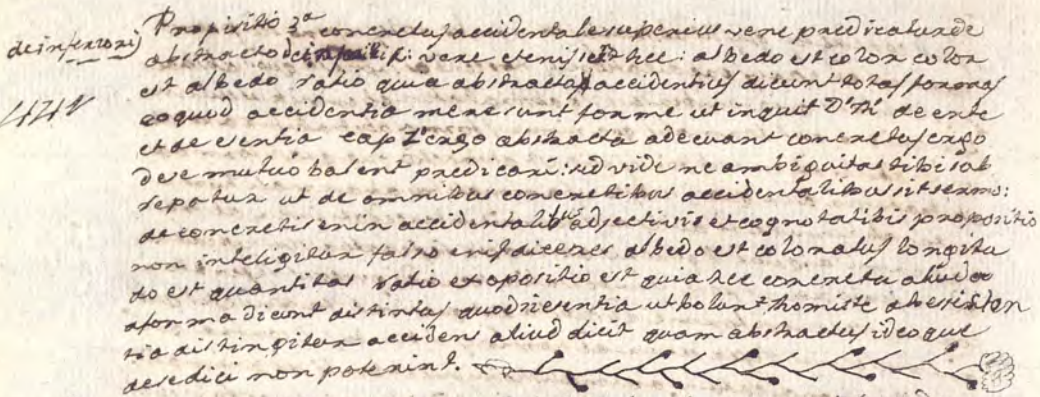 Propositio 3ª concretus accidentale superius vere predicatur de
de inferiori
abstracto vere etenis hec: albedo est color color
est albedo ratio quia abstracta accidentius dicunt totas formas
eo quod accidentia mere sunt forme ut inquit D. Th. de ente
et de esentia cap 7 ergo abstracta adecuant concretus ergo
de se mutuo balent predicari: sed vide ne ambiguitas tibi sub
repatur ut de omnibus concretibus accidentalibus sit sermo:
de concretis enin accidentalibus adjectivis et cognotatibis propositio
non inteligitur falso enis diceres albedo est coloratus longitu
do est quantitas ratio expositio est quia hec concreta aliud a
a forma dicunt distintus quod si esentia ut bolunt thomiste ab esisten
tia distingitur accidens aliud dicit quam abstractus ideoque
de se dici non poterint.